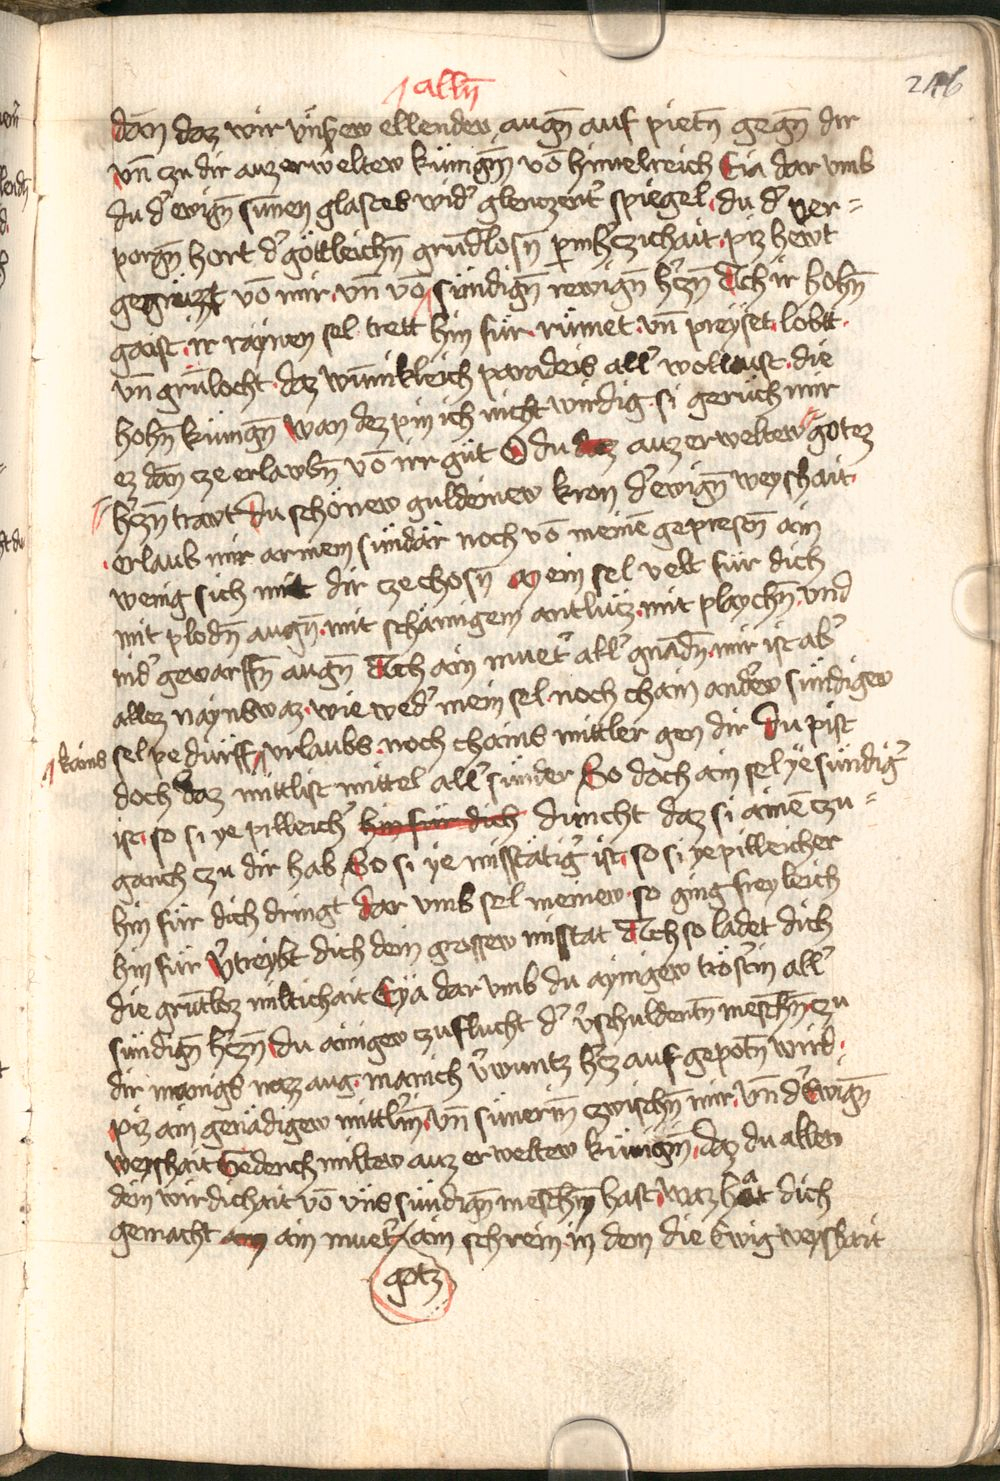 246
allñ
dān daz wir vnsew ellendew augñ auf pietñ gegñ dir
vn̄ czu dir auzerweltew künigin̄ vō himelreich Eia dar vmb
du d' ewign̄ sunnen glastes wid' glenczent' spiegel, du d' ver=
porgn̄ hort d' göttleichn̄ grūdlosn̄ parmh'czichait, piz hewt
gegrüzt vō mir, vn̄ vō sündign̄ rewign̄ h'czn̄ Ach ir hohn̄
gaist, ir raynen sel trett hin für, rümet, vn̄ preyset, lobt
vn̄ grülocht, daz wūnikleich paradeis all' wollust, die
hohn̄ künign̄ Wan dez pin ich nicht wirdig, si geruch mir
ez dān cze erlawbn̄ vō irr güt O du auzerweltew gotez
h'czn̄ trawt Du schönew guldeinew kron d' ewign̄ weyshait
erlaub mir armem sündär noch vō meinē gepresen̄ ain
wenig sich mit dir czechosn̄ Mein sel velt für dich
mit plodn̄ augn̄, mit schämigem antlütz, mit playchn̄, vnd
nid' gewarffn̄ augn̄ Ach ain muet' all' gnādn̄, mir ist ab'
allez naynswaz, wie wed' mein sel, noch chain and'ew sündigew
kains sel pedürff, vrlaubs, noch chains mittler gen dir Du pist
doch daz mittlist mittel all' sünder So doch ain sel ye sündig'
ist, so si ye pilleich' hin für dich duncht daz si ainē czu=
ganch czu dir hab So si ye misstätig' ist, so si ye pilleicher
hin für dich dringt Dar vmb sel meinew, so ging freyleich
hin für V'treybt dich dein grossew misstat Ach so ladet dich
die grūtloz miltichait Eya dar vmb du aynigew trösterin all'
sündign̄ h'czn̄ Du ainigew czuflucht d' v'schuldentn̄ mēschn̄, czu
dir mangs nazz aug, manich v'wuntz h'cz auf gepotn̄ wird,
Piz ain genädigew mittl'in̄, vn̄ sünerin̄ czwischn̄ mir, vn̄ d' Ewign̄
weyshait Gedench miltew auz erweltew künigin̄, daz du allen
dein wirdichait vō vns sündign̄ mēschn̄ hast, waz hat dich
gemacht ain muet', ain schrein in dem die ewig weyshait
gotz